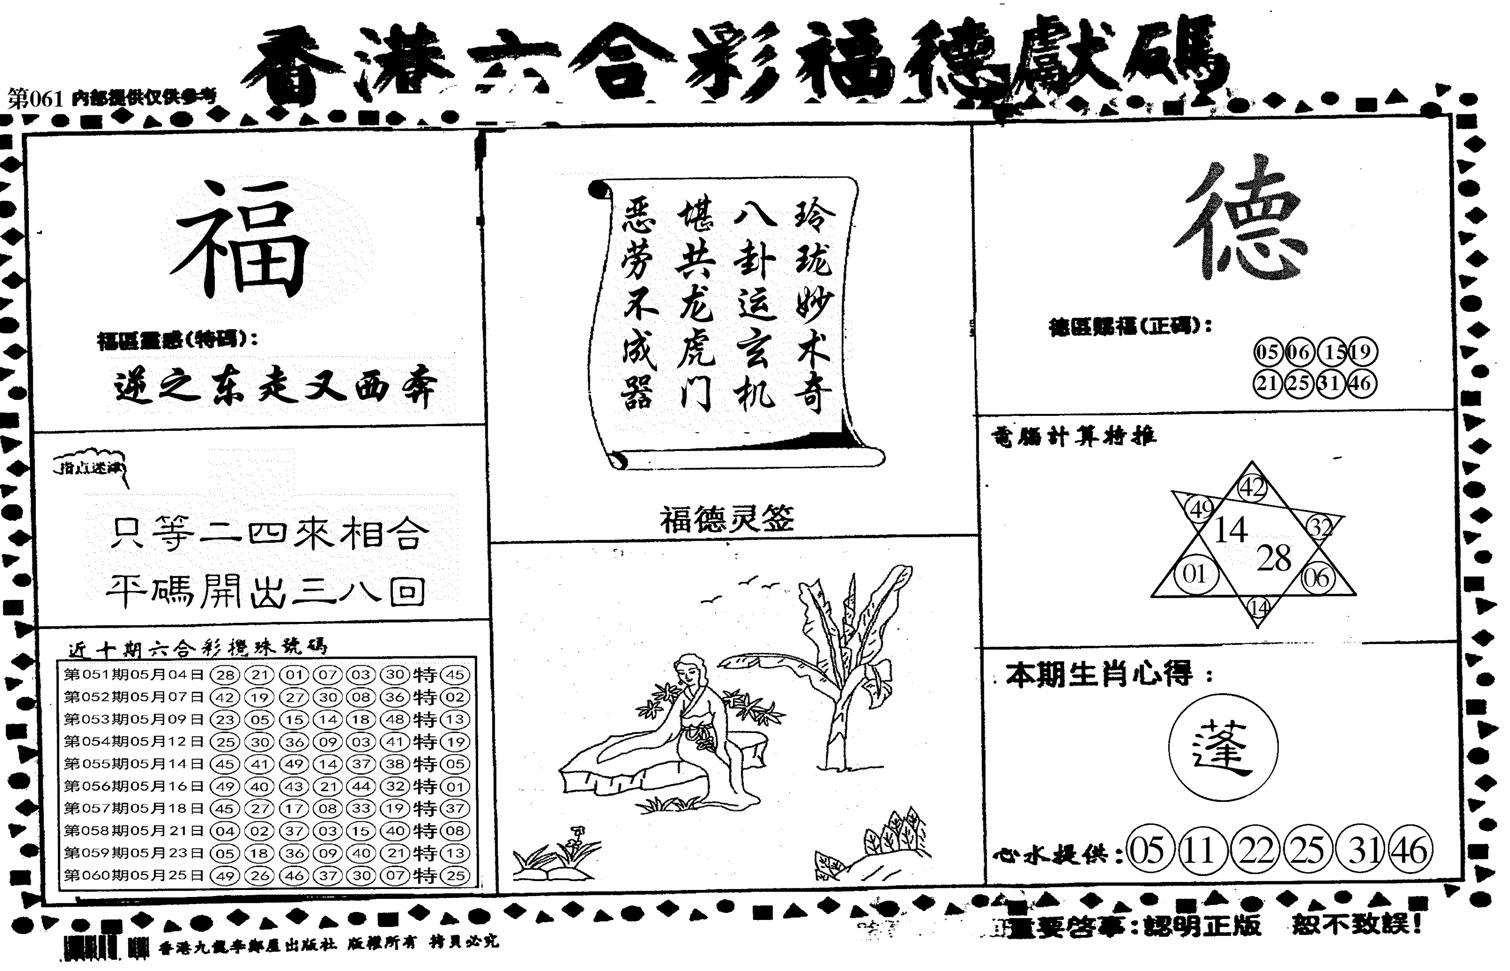 香港六合彩福德獻碼
第061 内部提供仅供参考
福
福區靈感(特碼):
逆之东走又西奔
指点迷津
只等二四來相合
平碼開出三八回
近十期六合彩攪珠號碼
第051期05月04日 28 21 01 07 03 30 特 45
第052期05月07日 42 19 27 30 08 36 特 02
第053期05月09日 23 05 15 14 18 48 特 13
第054期05月12日 25 30 36 09 03 41 特 19
第055期05月14日 45 41 49 14 37 38 特 05
第056期05月16日 49 40 43 21 44 32 特 01
第057期05月18日 45 27 17 08 33 19 特 37
第058期05月21日 04 02 37 03 15 40 特 08
第059期05月23日 05 18 36 09 40 21 特 13
第060期05月25日 49 26 46 37 30 07 特 25
玲珑妙术奇
八卦运玄机
堪共龙虎门
恶劳不成器
福德灵签
德
德區賜福(正碼):
05 06 15 19
21 25 31 46
電腦計算特推
42
49
32
14
28
01
06
14
本期生肖心得:
蓬
心水提供: 05 11 22 25 31 46
重要啓事:認明正版 恕不致誤!
香港九龍李鄭屋出版社 版權所有 拷貝必究